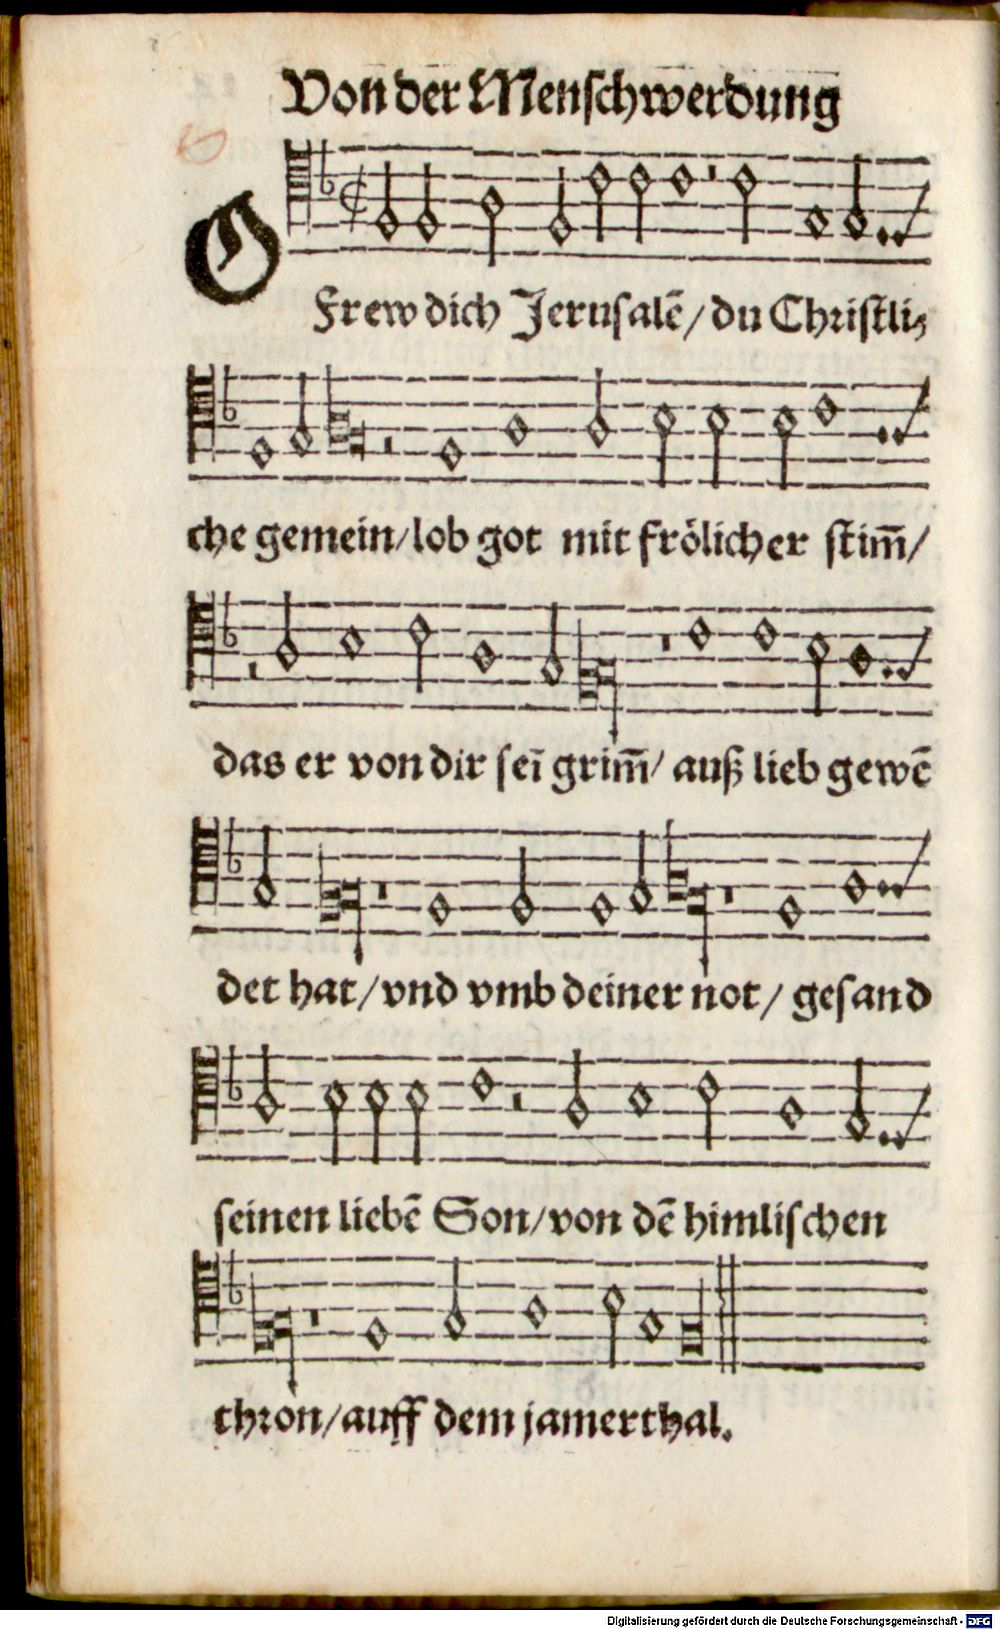 Von der Menschwerdung
O
Frew dich Jerusalē/ du Christli⸗
che gemein/ lob got mit frölicher stim̄/
das er von dir seī grim̄/ auß lieb gewē
det hat/ vnd vmb deiner not/ gesand
seinen liebē Son/ von dē himlischen
thron/ auff dem jamerthal.
Digitalisierung gefördert durch die Deutsche Forschungsgemeinschaft - DFG